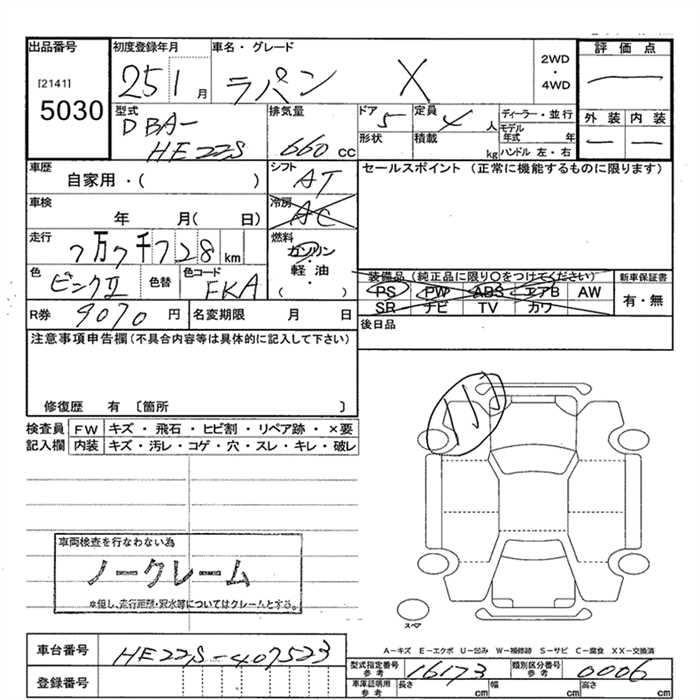 出品番号 初度登録年月 車名・グレード 評価点
[2141] 25 1月 ラパン X 2WD・4WD
5030
型式 DBA-HE22S 排気量 660 CC ドア 5 定員 4 人 ディーラー・並行 外装 内装
形状 積載 kg モデル年式 年
ハンドル 左・右
車歴 自家用・( ) シフト AT セールスポイント (正常に機能するものに限ります)
車検 年 月( 日) 冷房 AC
走行 7万7千728km 燃料 ガソリン・軽油・( )
色 ピンクII 色替 色コード FKA 装備品 (純正品に限り○をつけてください) 新車保証書
PS PW ABS エアB AW 有・無
SR ナビ TV カワ
R券 9070 円 名変期限 月 日 後日品
注意事項申告欄(不具合内容等は具体的に記入して下さい)
修復歴 有 〔箇所 〕
検査員 FW キズ・飛石・ヒビ割・リペア跡・×要
記入欄 内装 キズ・汚レ・コゲ・穴・スレ・キレ・破レ
車両検査を行なわない為
ノークレーム
※但し、走行距離・冠水等についてはクレームとする。
スペア
A-キズ E-エクボ U-凹み W-補修跡 S-サビ C-腐食 XX-交換済
車台番号 HE22S-407523 型式指定番号 参考 16173 類別区分番号 参考 0006
登録番号 車庫証明用 参考 長さ cm 幅 cm 高さ cm